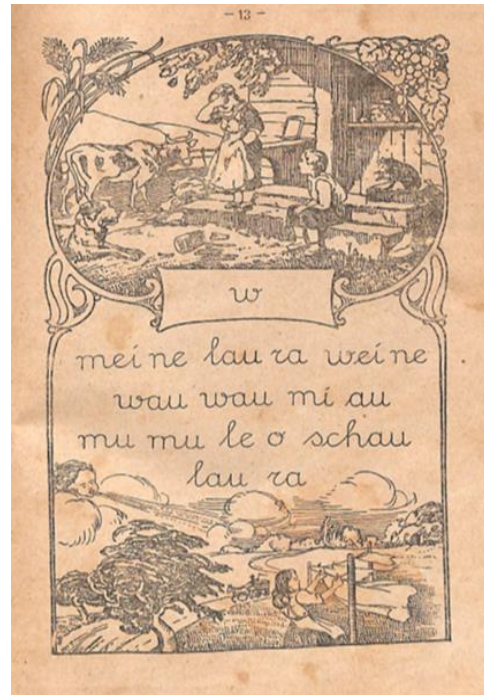 - 13 -
w
mei ne lau ra wei ne
wau wau mi au
mu mu le o schau
lau ra